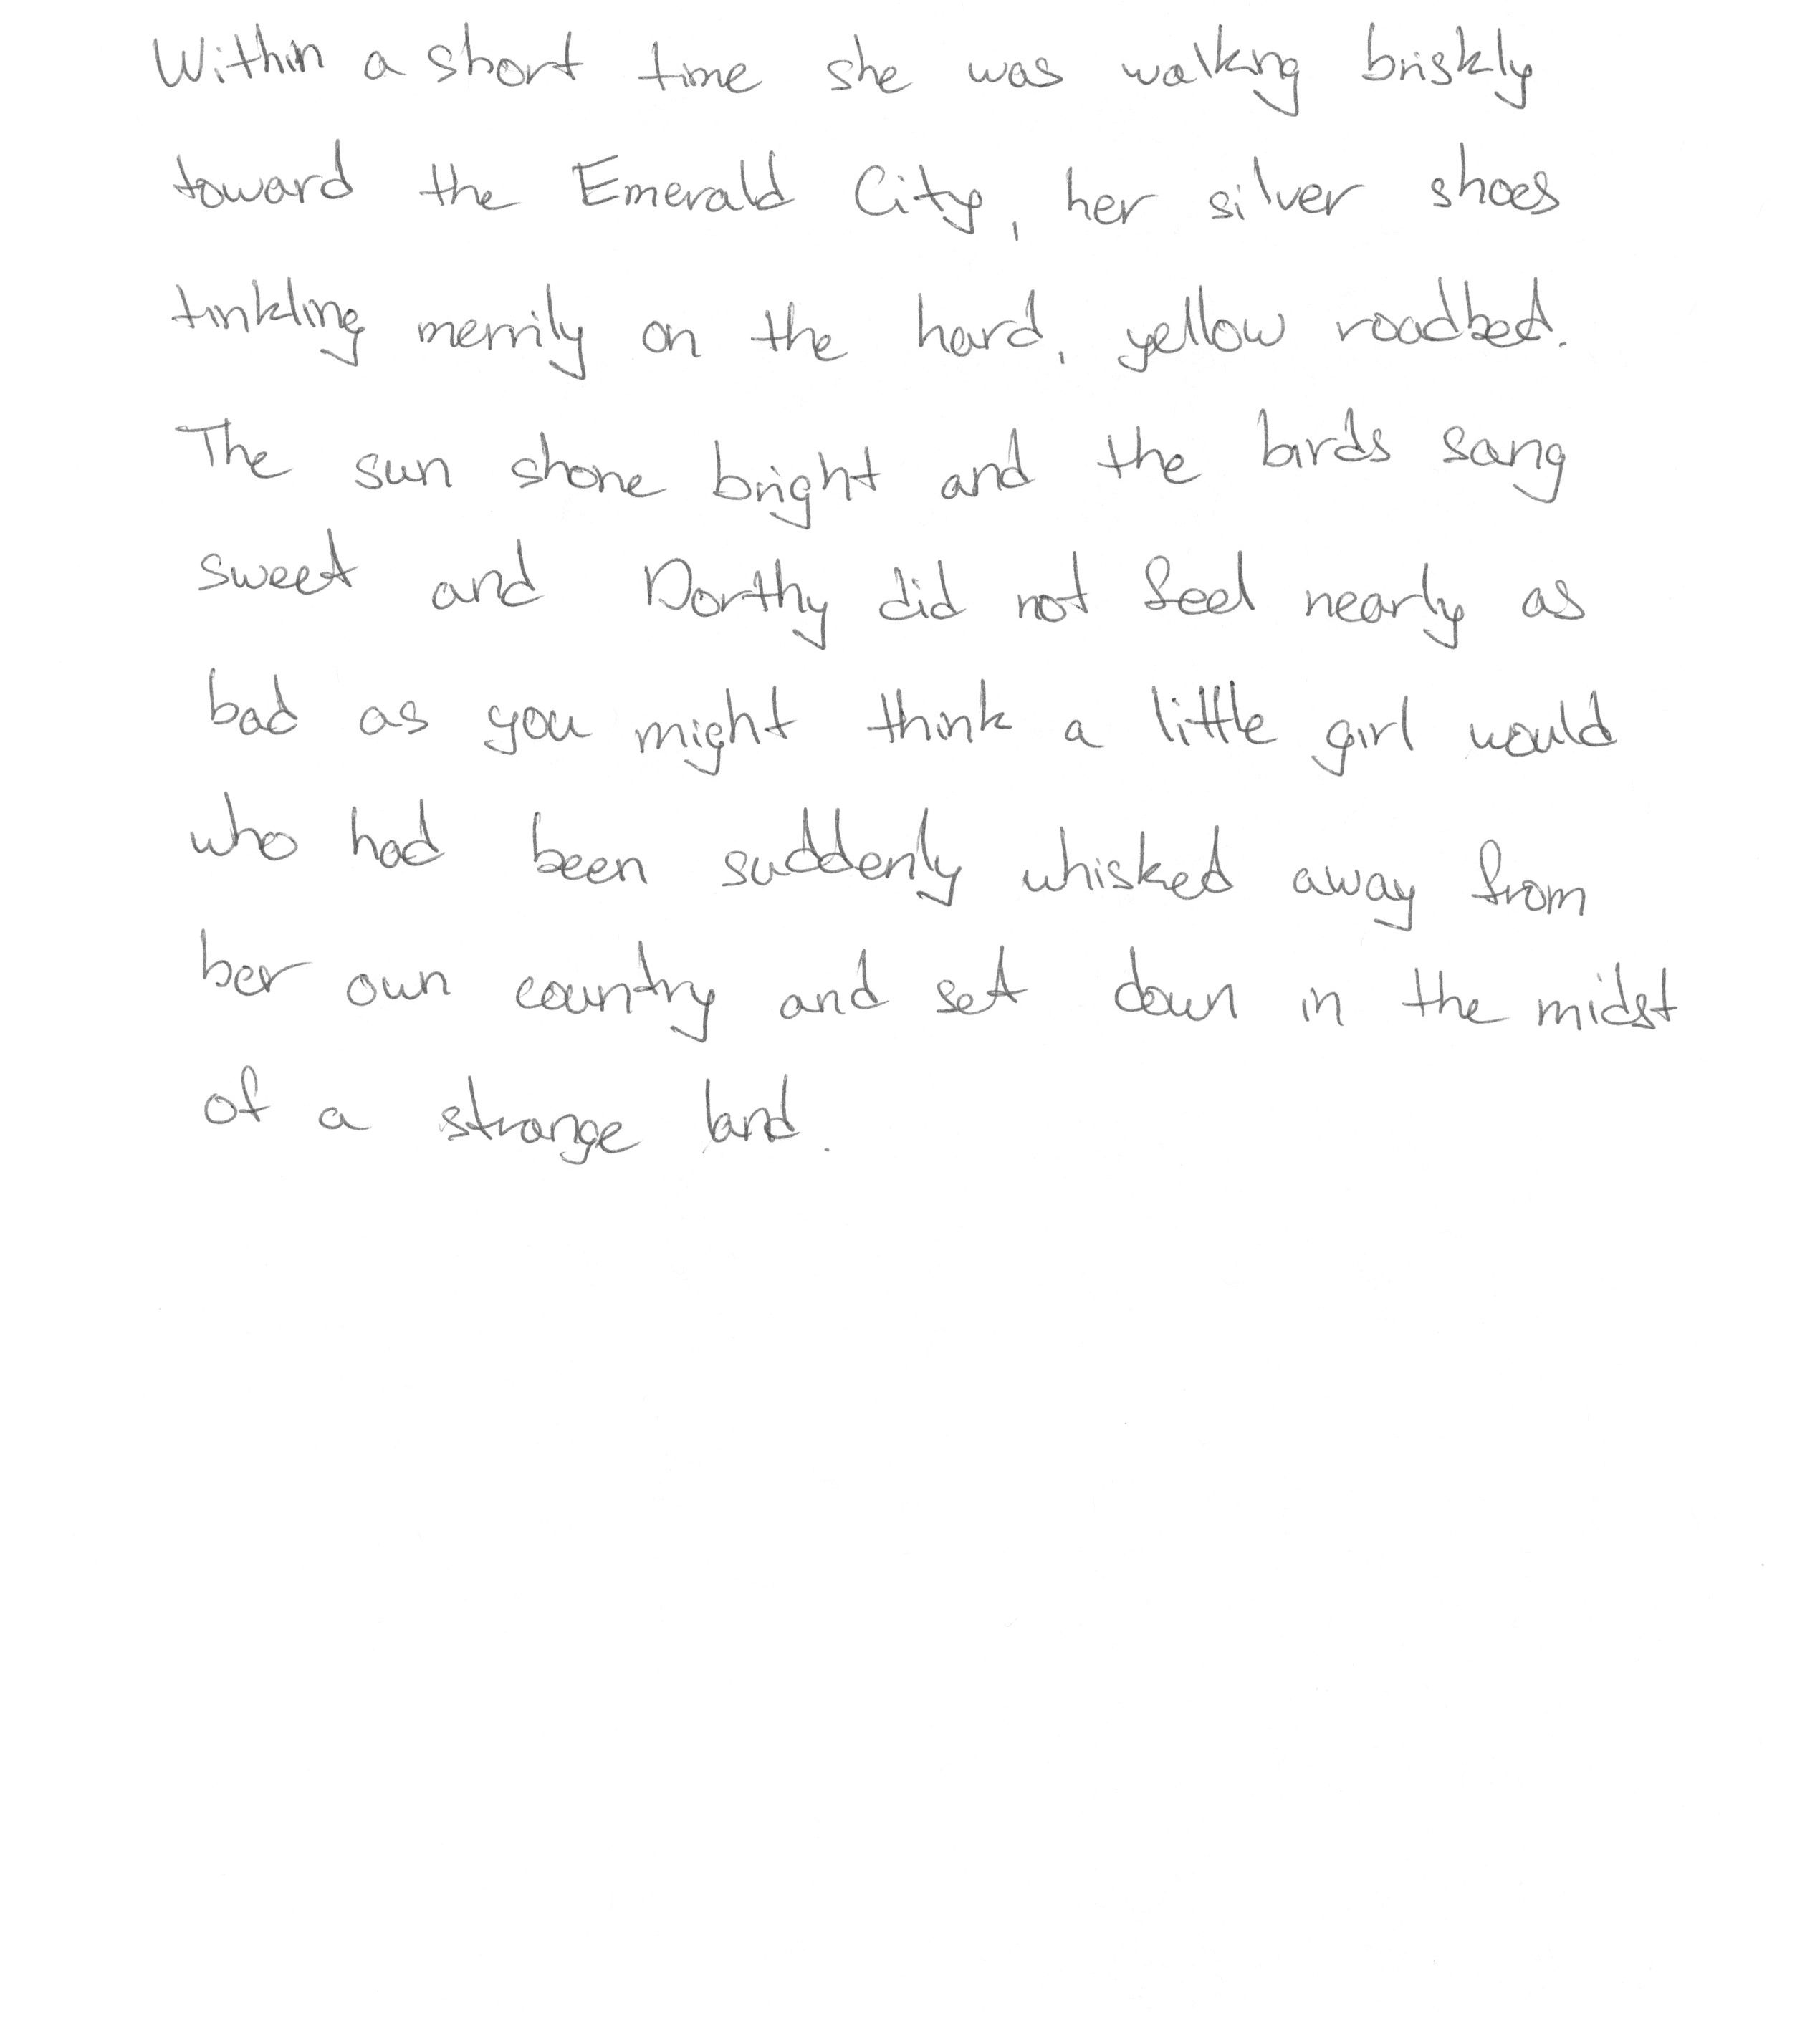 Within a short time she was walking briskly
toward the Emerald City, her silver shoes
tinkling merrily on the hard, yellow roadbed.
The sun shone bright and the birds sang
sweet and Dorthy did not feel nearly as
bad as you might think a little girl would
who had been suddenly whisked away from
her own country and set down in the midst
of a strange land.